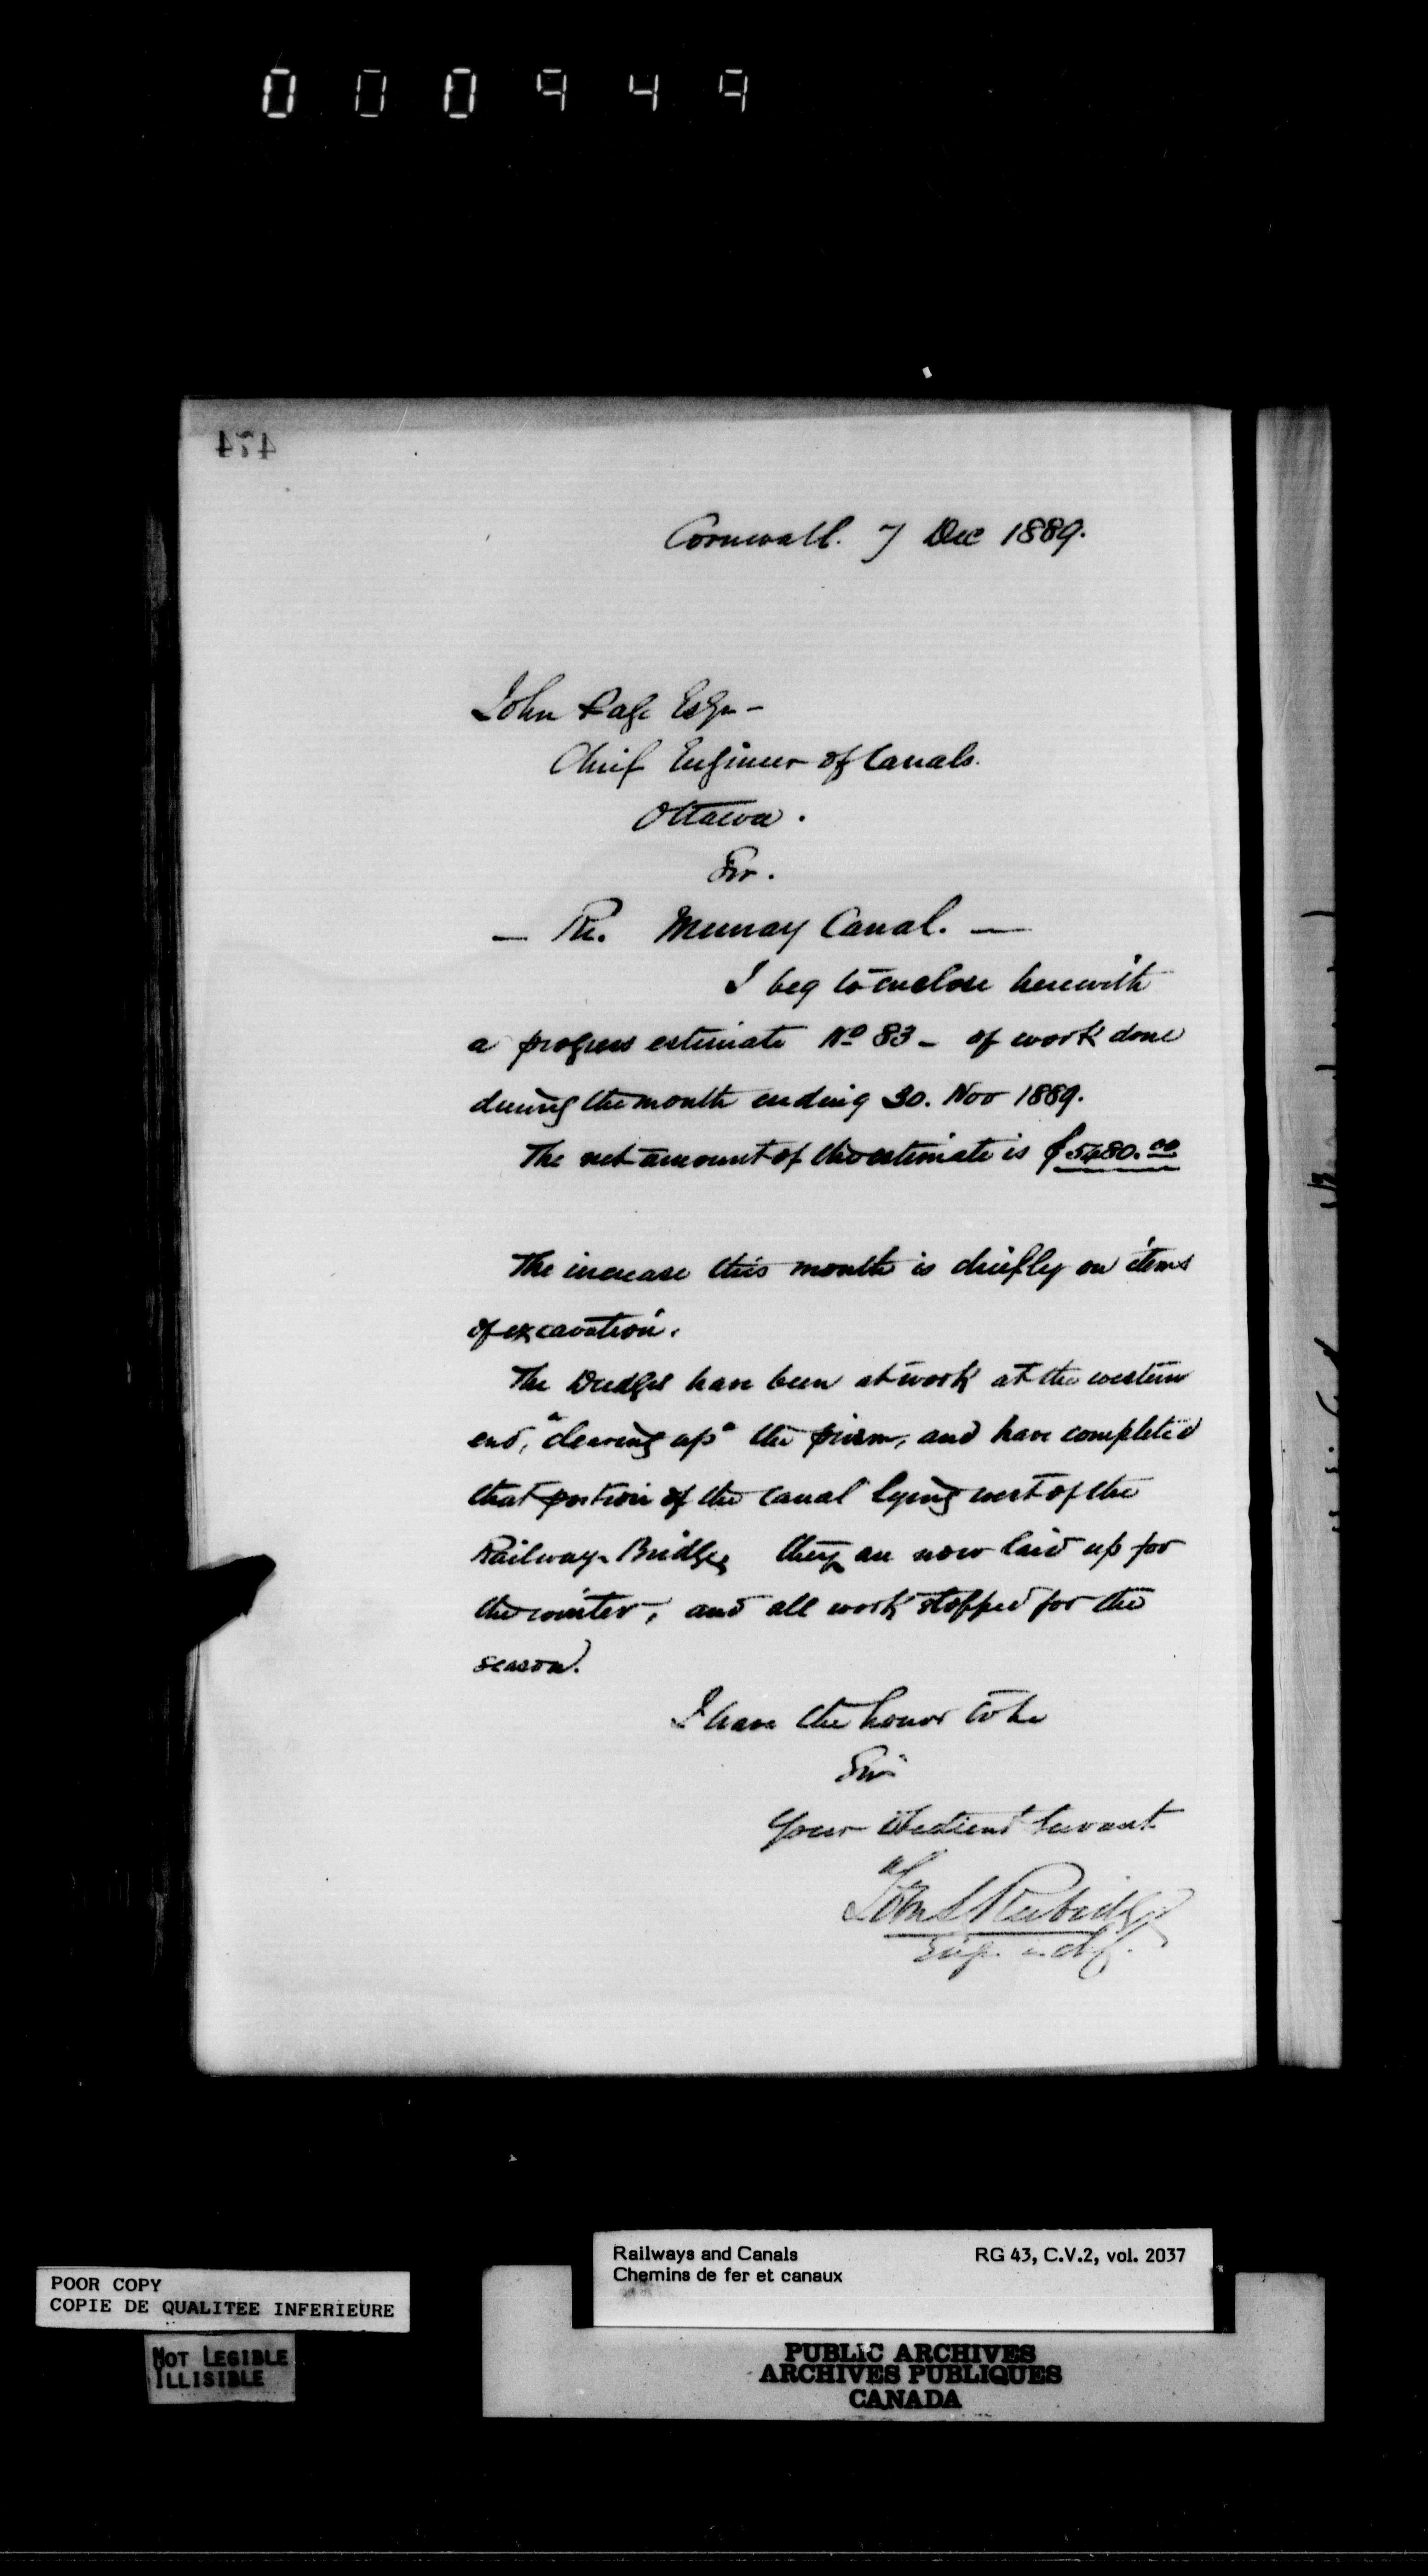 000949
474
Cornwall. 7 Dec 1889.
John Page Esqr -
Chief Engineer of Canals.
Ottawa.
Sir.
- Re. Murray Canal. -
I beg to enclose herewith
a progress estimate No 83 - of work done
during the month ending 30. Nov 1889.
The net amount of this estimate is $5480.00
The increase this month is chiefly on items
of excavation.
The Dredges have been at work at the western
end, "clearing up" the prism, and have completed
that portion of the canal lying west of the
Railway Bridge, they are now laid up for
the winter, and all work stopped for the
season.
I have the honor to be
Sir
Your Obedient Servant
John S Rubidge
Eng. in chf.
Railways and Canals
Chemins de fer et canaux
RG 43, C.V.2, vol. 2037
POOR COPY
COPIE DE QUALITEE INFERIEURE
NOT LEGIBLE
ILLISIBLE
PUBLIC ARCHIVES
ARCHIVES PUBLIQUES
CANADA